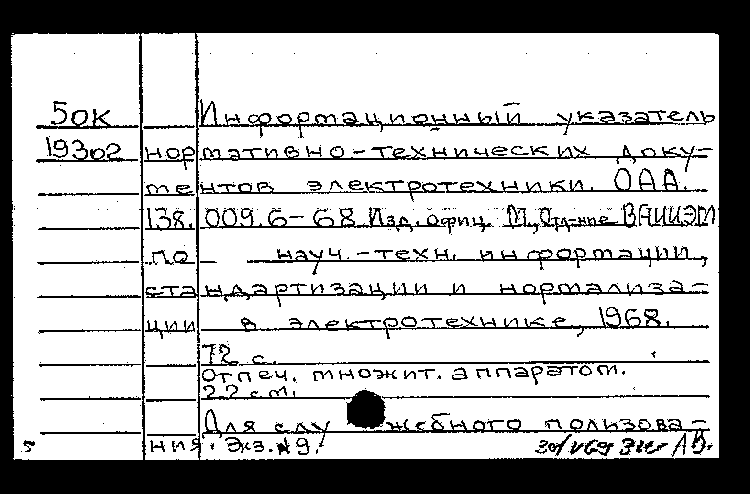 50К Информационный указатель
19302 нормативно-технических доку-
ментов электротехники. ОАА.
138.009.6-68. Изд. офиц. М., Отд-ние ВНИИЭМ
по науч.-техн. информации,
стандартизации и нормализа-
ции в электротехнике, 1968.
72 с.
Отпеч. множит. аппаратом.
22 см.
Для служебного пользова-
ния. Экз. №9.